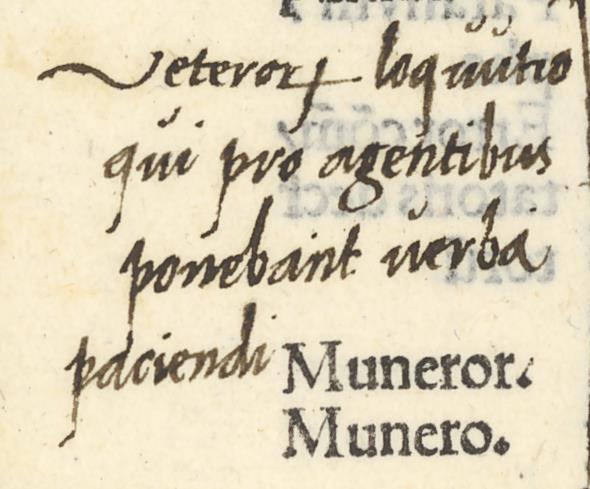 Veteroꝝ loquutio
qui pro agentibus
ponebant uerba
paciendi
Muneror.
Munero.